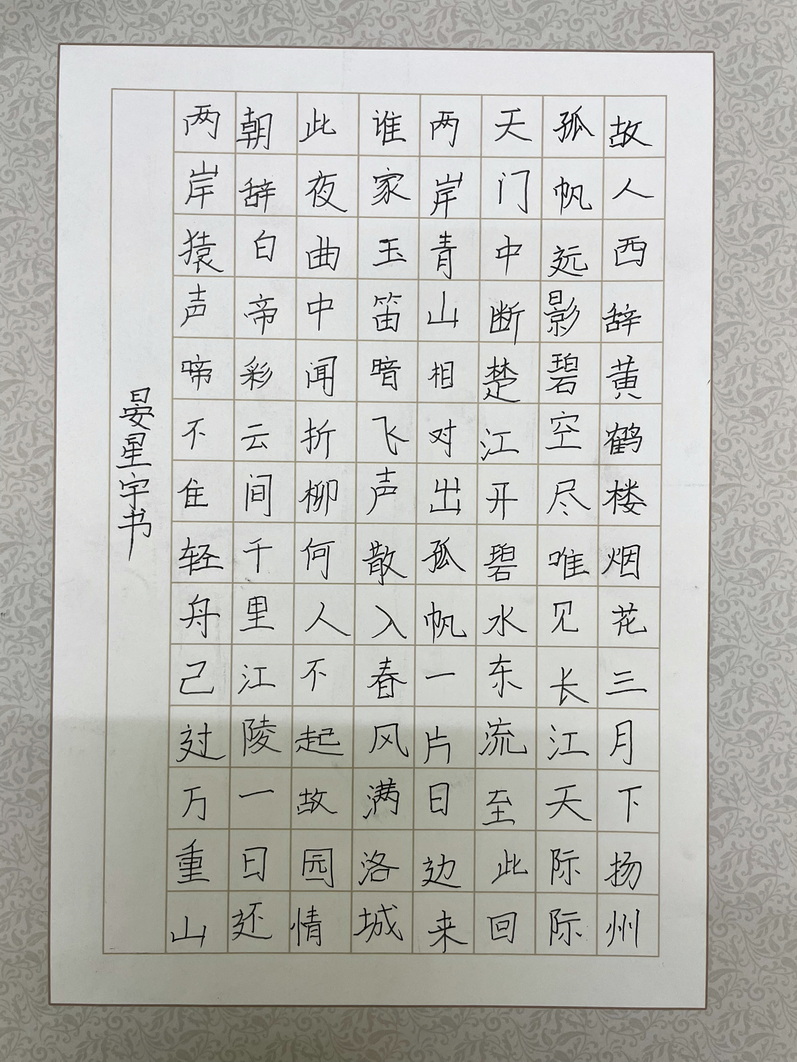 故人西辞黄鹤楼烟花三月下扬州
孤帆远影碧空尽唯见长江天际际
天门中断楚江开碧水东流至此回
两岸青山相对出孤帆一片日边来
谁家玉笛暗飞声散入春风满洛城
此夜曲中闻折柳何人不起故园情
朝辞白帝彩云间千里江陵一日还
两岸猿声啼不住轻舟己过万重山
晏星宇书